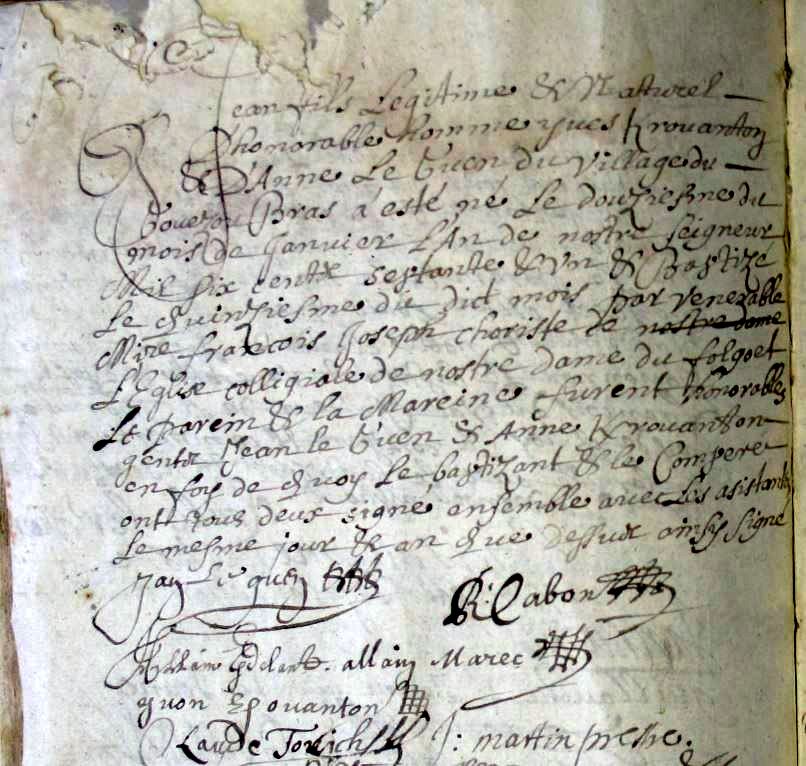 Jean fils Legitime & Natturel
honorable homme yves Krouanton
& D'Anne Le Guen du village du
Bras a esté né Le douziesme du
mois de janvier L'An de nostre seigneur
Mil six centz septante & vn & Baptizé
Le quinziesme du dict mois par venerable
Mire francois Joseph choriste de nostre dame
L'Eglise colligiale de nostre dame du folgoet
Le parein & la Mareine furent honorables
gentz Jean le Guen & Anne Krouanton
en foy de quoy Le baptizant & le Compere
ont tous deux signé ensemble avec Les asistants
Le mesme jour & an que dessus ainsy signé
Jan Le guen R: Cabon
allain Marec
yuon
Laude J: martin prestre.